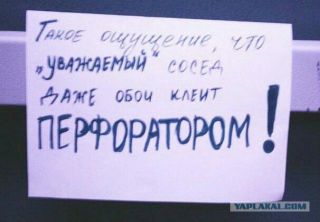 Такое ощущение, что
„уважаемый" сосед
даже обои клеит
ПЕРФОРАТОРОМ!
YAPLAKAL.COM